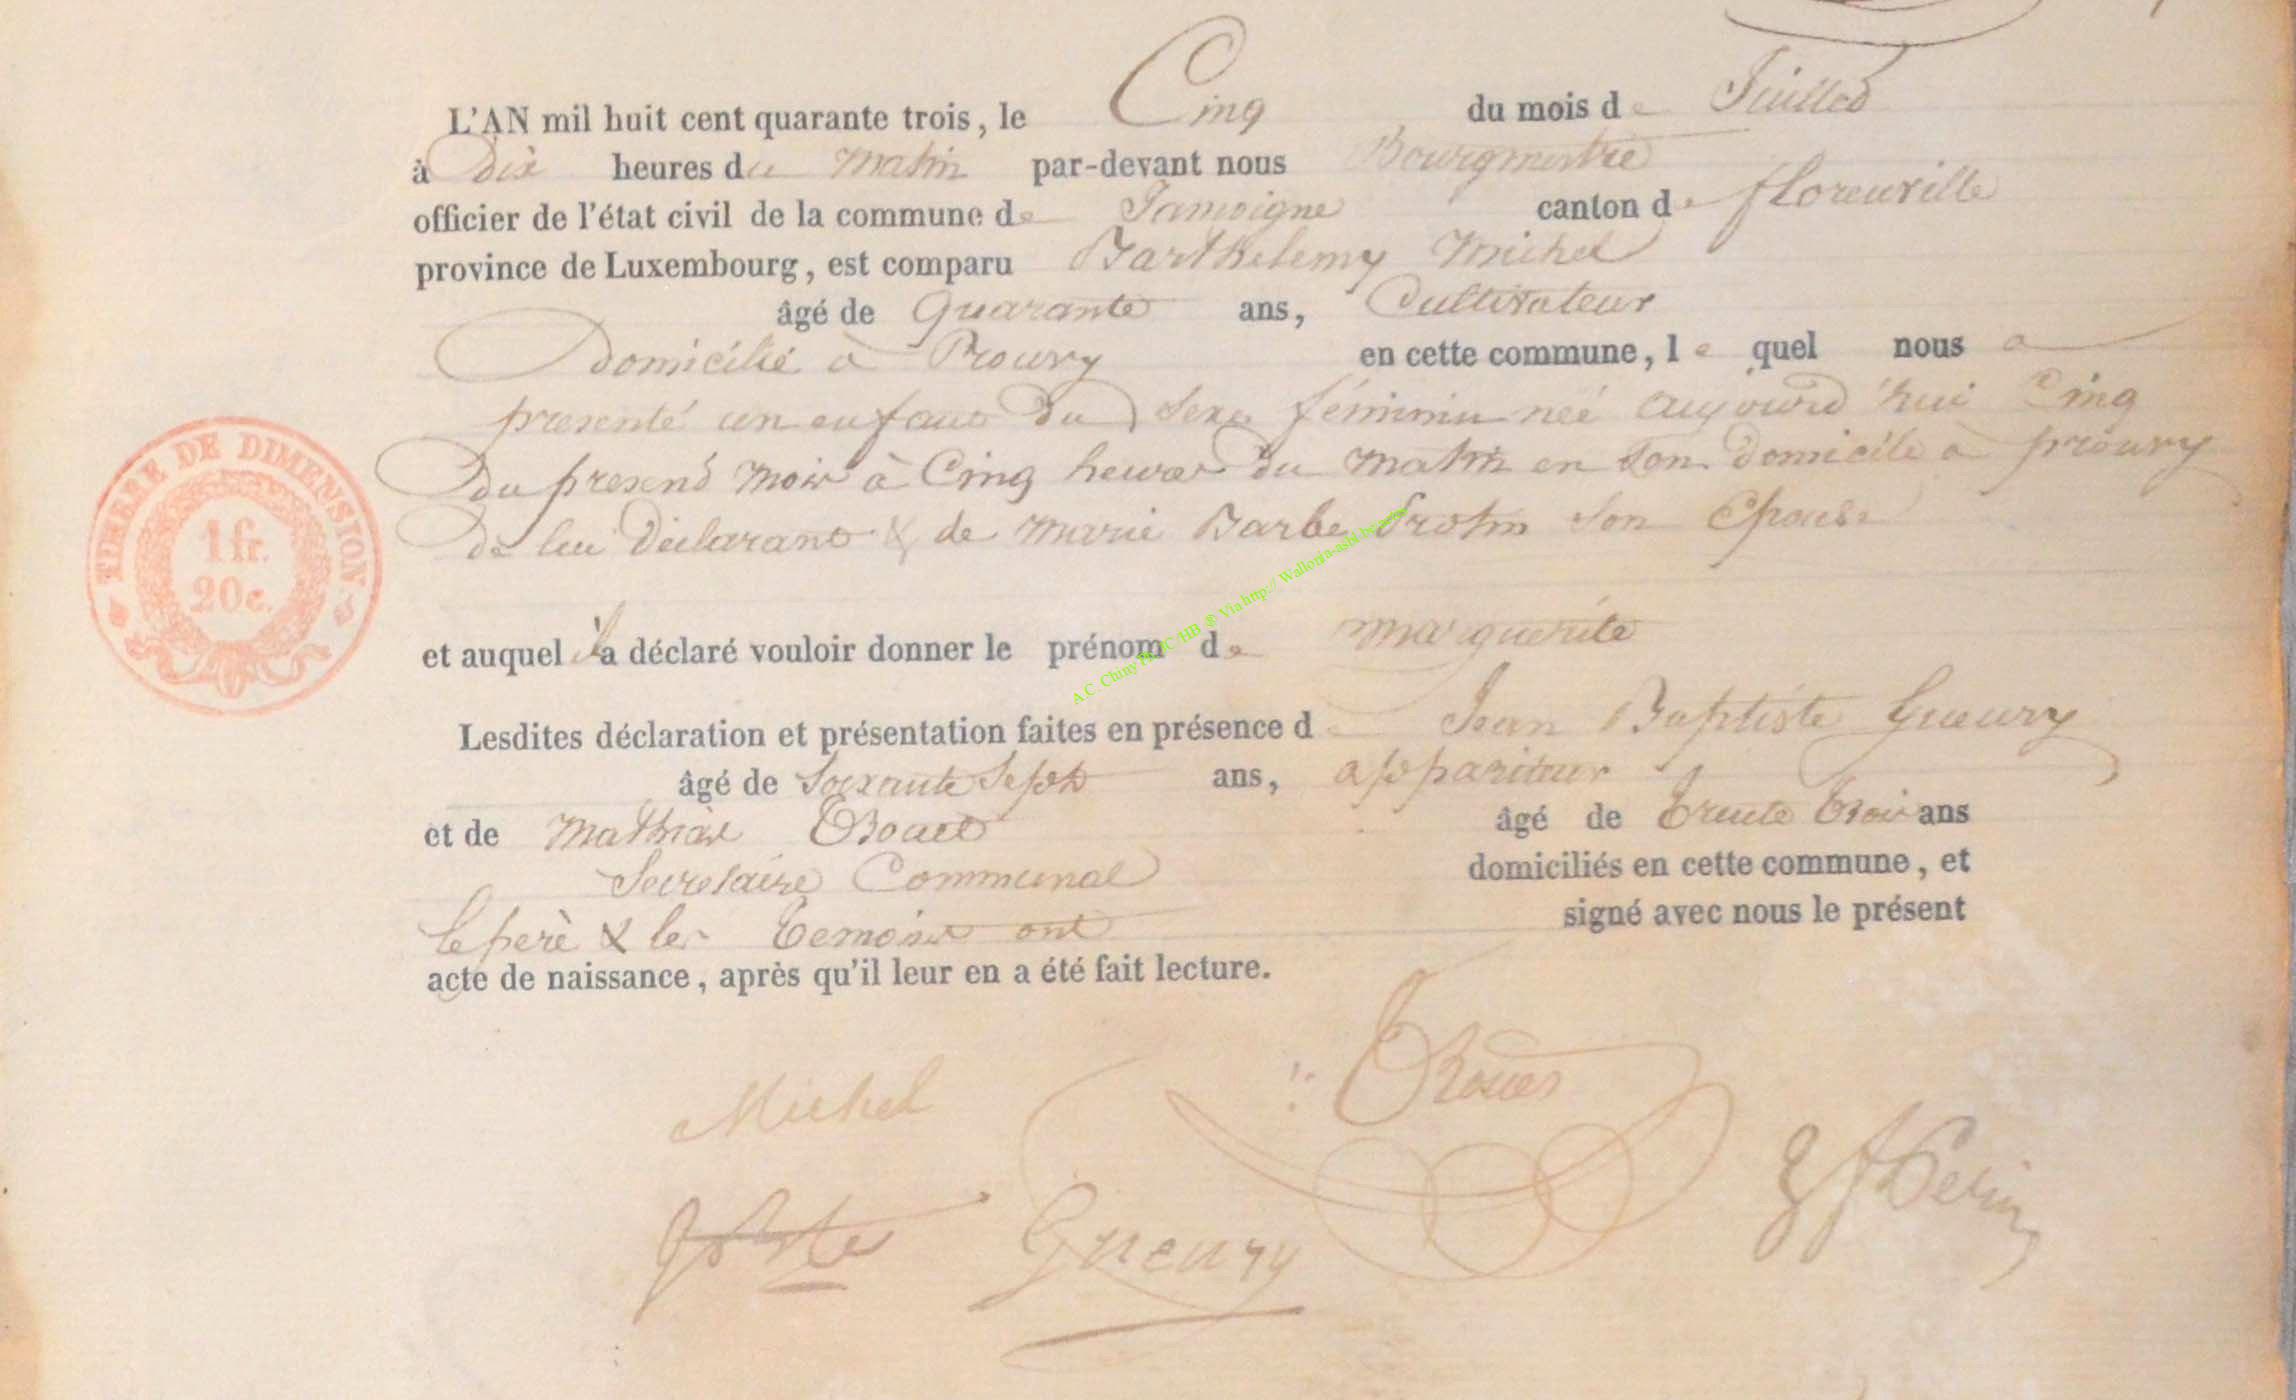 L'AN mil huit cent quarante trois, le Cinq du mois de Juillet
à dix heures du matin par-devant nous Bourgmestre
officier de l'état civil de la commune de Jamoigne canton de florenville
province de Luxembourg, est comparu Barthelemy Michel
âgé de Quarante ans, Cultivateur
Domicilié à Prouvy en cette commune, le quel nous a
presenté un enfant du Sexe féminin neé aujourd'hui Cinq
du present mois à Cinq heures du matin en son domicile à prouvy
de lui déclarant & de marie Barbe son Epouse
TIMBRE DE DIMENSION
1 fr.
20 c.
et auquel il a déclaré vouloir donner le prénom de marguerite
Lesdites déclaration et présentation faites en présence de Jean Baptiste Gueury
âgé de Soixante Sept ans, appariteur
et de Mathias âgé de Trente trois ans
Secretaire Communal domiciliés en cette commune, et
le père & les temoins ont signé avec nous le présent
acte de naissance, après qu'il leur en a été fait lecture.
Michel
Gueury